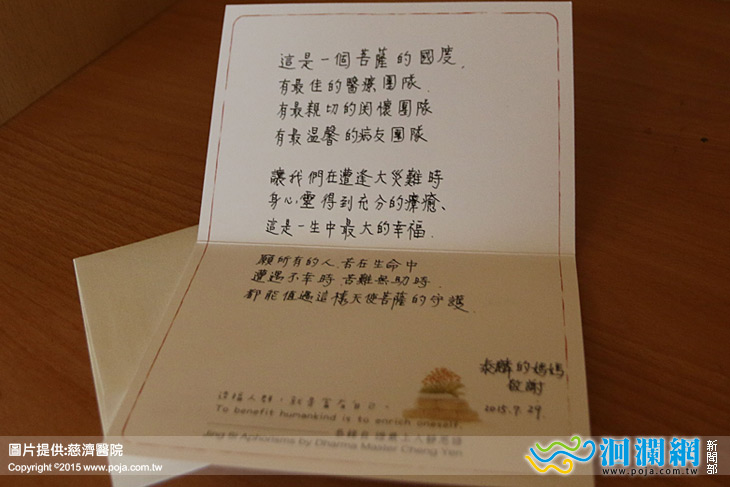 這是一個菩薩的國度,
有最佳的醫療團隊,
有最親切的関懷團隊
有最温馨的病友團隊
讓我們在遭逢大災難時
身心靈得到充分的療癒、
這是一生中最大的幸福.
願所有的人,若在生命中
遭遇不幸時,苦難無助時.
都能值遇這樣天使菩薩的守護.
泰麟的媽媽
敬謝
2015.9.29.
造福人群,就是富有自己。
To benefit humankind is to enrich oneself.
Jing Si Aphorisms by Dharma Master Cheng Yen
圖片提供:慈濟醫院
Copyright ©2015 www.poja.com.tw
洄瀾網
www.poja.com.tw
新聞部